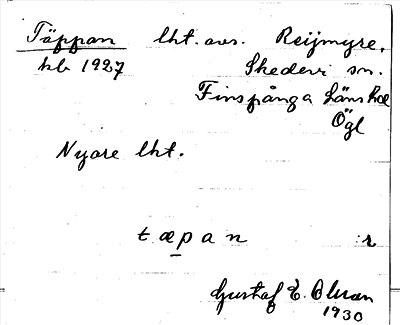 Täppan lht. avs. Reijmyre,
kb 1927 Skedevi sn.
Finspånga läns hd
Ögl
Nyare lht.
tæpan r
Gustaf E. Olsson
1930